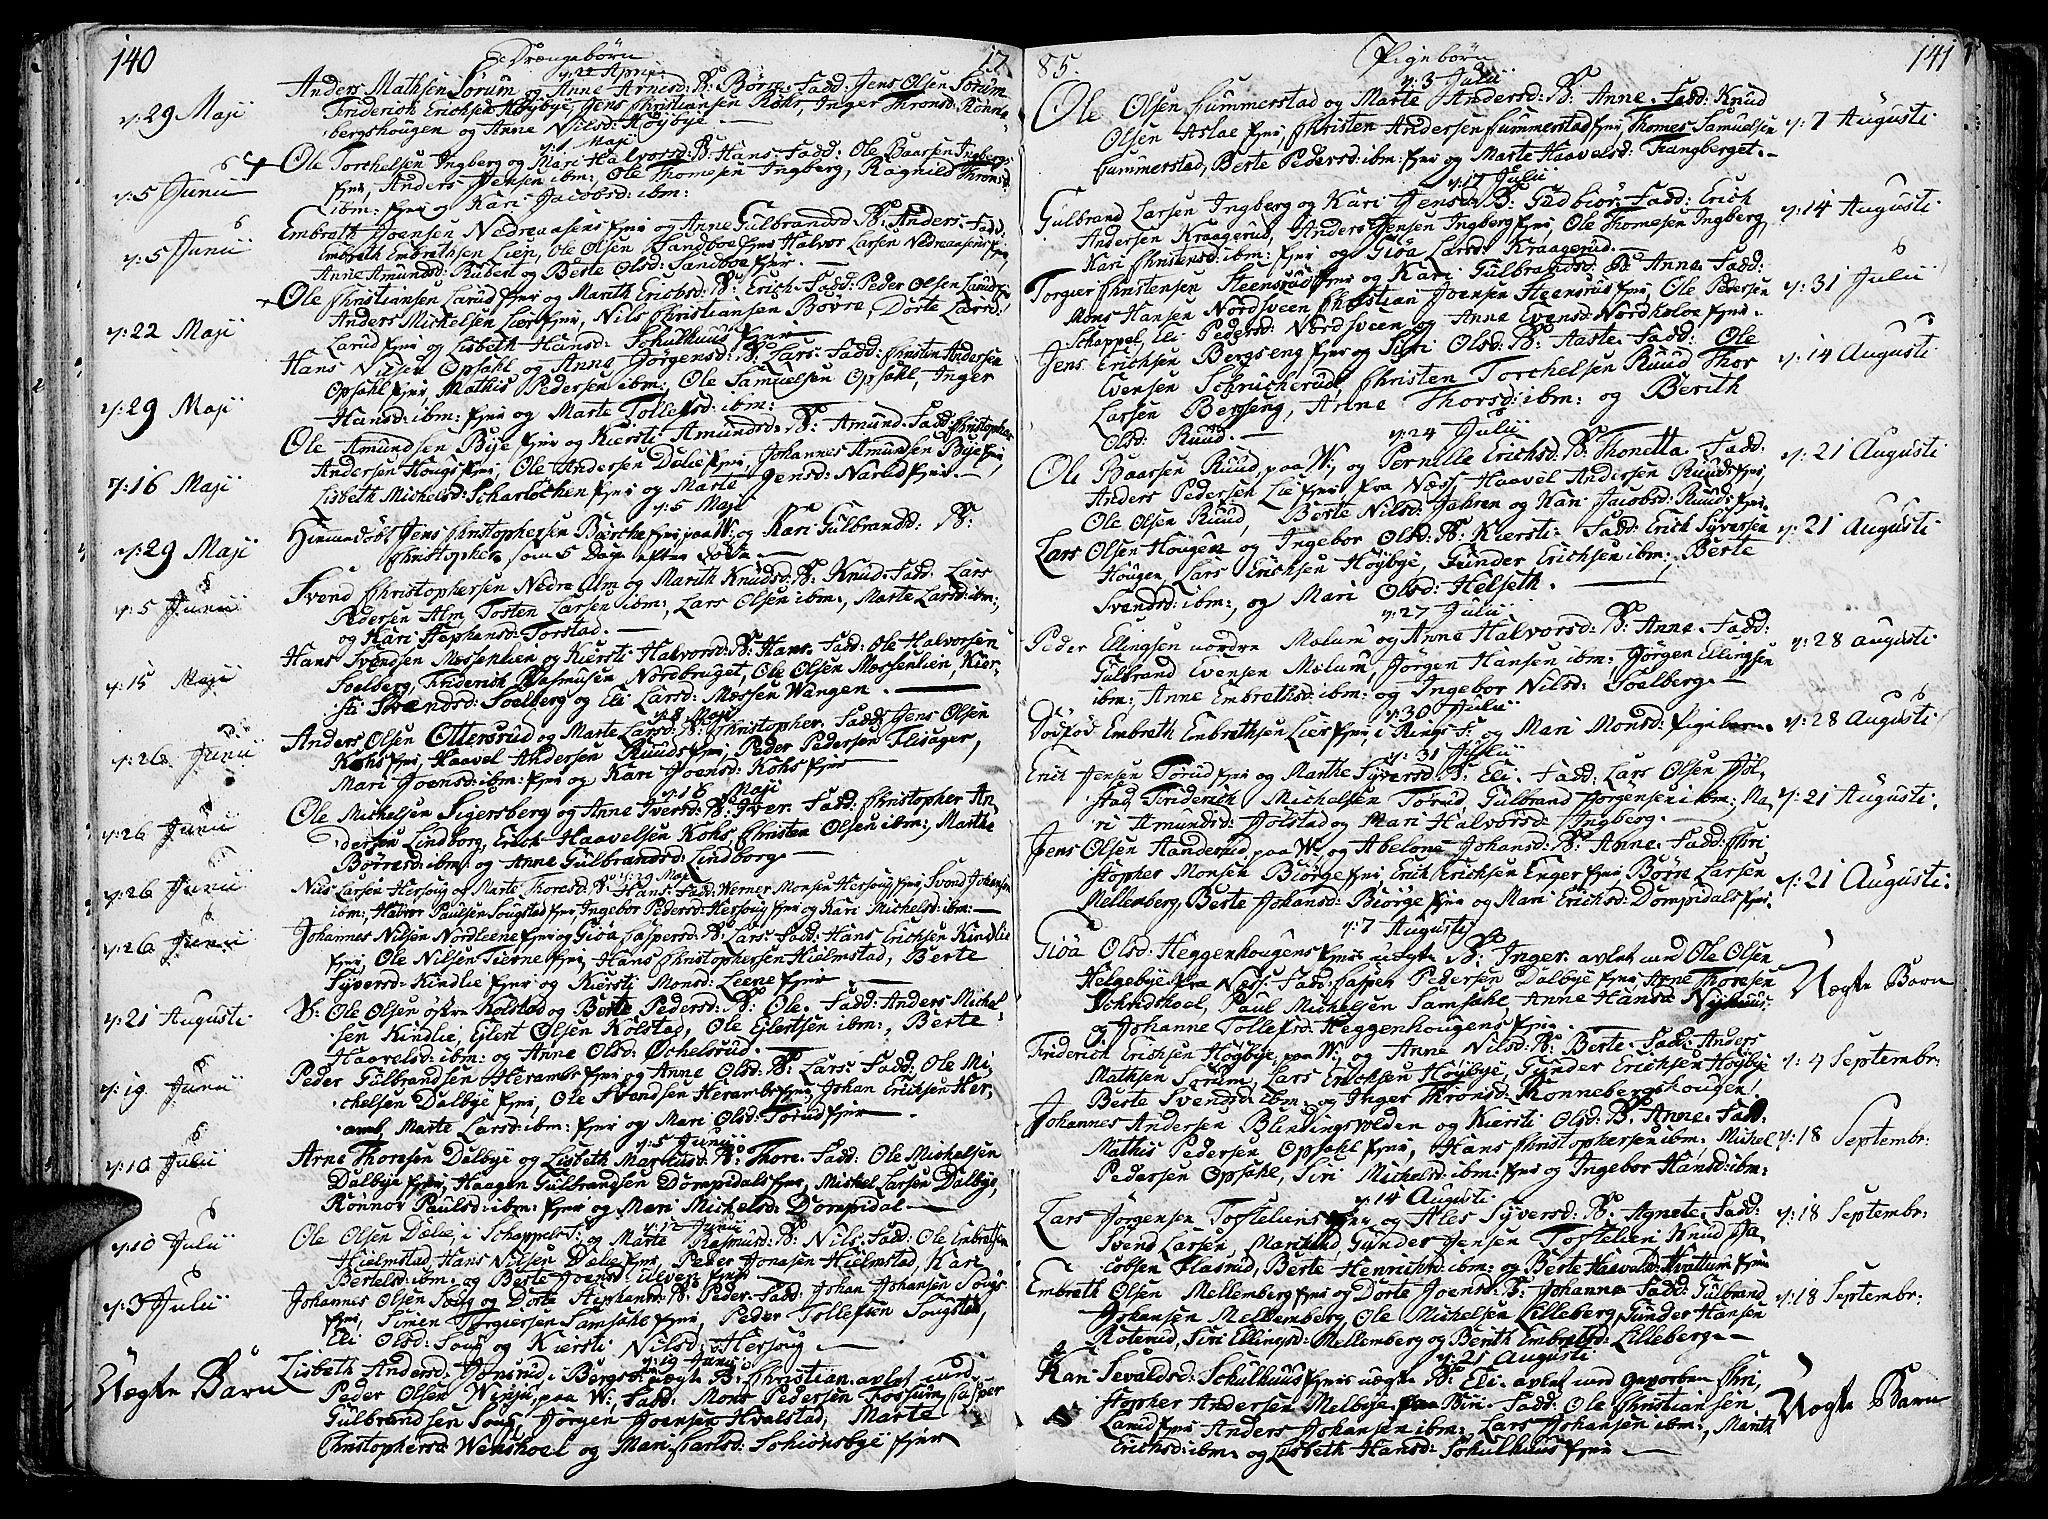 140
Drængebørn
17
d: 22 April
Anders Mathsen Sørum og Anne Arnesd: B: Børre. Fadd: Jens Olsen Sørum
d: 29 Maji
Friderich Erichsen Høybye, Jens Christiansen Kohs, Inger Thronsd: Rønne-
bergshougen og Anne Nilsd: Høybye
d: 1 Maji
Ole Torchelsen Ingberg og Kari Halvorsd: B: Hans. Fadd: Ole Baarsen Ingbergs
d: 5 Junii
Ejer, Anders Jensen ibm:, Ole Thomesen Ingberg, Ragnild Thronsd:
ibm: Ejer og Kari Jacobsd: ibm:
Embreth Joensen Nædreaasens Ejer og Anne Gulbrandsd: B: Anders. Fadd:
d: 5 Junii
Embreth Embrethsen Lien, Ole Olsen Sandboe Ejer Halvor Larsen Nedreaasens Ejer
Anne Amundsd: Ruben og Berte Olsd: Sandboe Ejer.
Ole Christiansen Larud Ejer og Marith Erichsd: B: Erich. Fadd: Peder Olsen Larud
d: 22 Maji
Anders Michelsen Lier Ejer, Nils Christiansen Børre, Dorte Larsd:
Larud Ejer og Lisbeth Hansd: Schulhuus Ejer
Hans Nilsen Opsahl og Anne Jørgensd: B: Lars. Fadd: Christen Andersen
d: 29 Maji
Opsahl Ejer, Mathis Pedersen ibm:, Ole Samuelsen Opsahl, Inger
Hansd: ibm: Ejer og Marte Tollefsd: ibm:
Ole Amundsen Bye Ejer og Kiersti Amundsd: B: Amund. Fadd: Christopher
d: 16 Maji
Andersen Hougs Ejer, Ole Andersen Dælie Ejer, Johannes Amundsen Bye Ejer,
Lisbeth Michelsd: Scharløchen Ejer og Marte Jensd: Narud Ejer.
d: 5 Maji
Hiemdøbt Jens Christophersen Børche Ejer paa W: og Kari Gulbrandsd: B:
d: 29 Maji
Christopher som 5 Dage efter døde
Svend Christophersen Nædre Alm og Marith Knudsd: B: Knud. Fadd: Lars
d: 5 Junii
Pedersen Alm, Torsten Larsen ibm:, Lars Olsen ibm:, Marte Larsd: ibm:,
og Kari Stephansd: Torstad.
Hans Svendsen Mæssenlien og Kiersti Halvorsd: B: Hans. Fadd: Ole Halvorsen
d: 15 Maji
Soelberg, Friderich Rasmusen Norebruget, Ole Olsen Mæssenlien, Kier-
sti Svendsd: Soelberg og Eli Larsd: Mæssen Wangen.
d: 8 Maji
Anders Olsen Ottersrud og Marte Larsd: B: Christopher. Fadd: Jens Olsen
d: 26 Junii
Kohs Ejer, Haavel Andersen Ruuds Ejer, Peder Pedersen Flisager,
Mari Joensd: ibm: Ejer og Kari Joensd: Kohs Ejer
d: 16 Maji
Ole Michelsen Sigersberg og Anne Iversd: B: Iver. Fadd: Christopher An-
d: 26 Junii
dersen Lindborg, Erich Haavelsen Kohs, Christen Olsen ibm:, Marthe
Børresd: ibm: og Anne Gulbrandsd: Lindborg
d: 29 Maji
Nils Larsen Hersoug og Marte Thoresd: B: Hans. Fadd: Werner Monsen Hersoug Ejer, Svend Johansen
d: 26 Junii
ibm:, Halvor Paulsen Sougstad Ejer, Ingebor Pedersd: Hersoug Ejer og Kari Michelsd: ibm:
Johannes Nilsen Nordleene Ejer og Giøa Caspersd: B: Lars. Fadd: Hans Erichsen Kindlie
d: 26 Junii
Ejer, Ole Nilsen Tierne Ejer, Hans Christophersen Hielmstad, Berte
Syversd: Kindlie Ejer og Kiersti Monsd: Leene Ejer
B: Ole Olsen østre Kolstad og Berte Pedersd: B: Ole. Fadd: Anders Michel-
d: 21 Augusti
sen Kindlie, Ejlert Olsen Kolstad, Ole Ejlertsen ibm:, Berte
Haavelsd: ibm: og Anne Olsd: Øchelsrud.
Peder Gulbrandsen Herambs Ejer og Anne Olsd: B: Lars. Fadd: Ole Mi-
d: 19 Junii
chelsen Dalbye Ejer, Ole Svendsen Herambs Ejer, Johan Erichsen Her-
amb, Marte Larsd: ibm: Ejer og Mari Olsd: Torud Ejer
d: 5 Junii
Arne Thoresen Dalbye og Lisbeth Marcusd: B: Thore. Fadd: Ole Michelsen
d: 10 Julii
Dalbye Ejer, Haagen Gulbrandsen Dompidals Ejer, Michel Larsen Dalbye,
Rønnov Paulsd: ibm: Ejer og Mari Michelsd: Dompidal
d: 12 Junii
Ole Olsen Dælie, i Schappels: og Marte Rasmusd: B: Nils. Fadd: Ole Embrethsen
d: 10 Julii
Hielmstad, Hans Nilsen Dæle Ejer, Peder Jonasen Hielmstad, Kari
Bertelsd: ibm: og Berte Joensd: Ulver Ejer
Johannes Olsen Soug og Dorte Stephansd: B: Peder. Fadd: Johan Johansen Sougs
d: 3 Julii
Ejer, Simen Torgiersen Samsahl Ejer, Peder Tollefsen Sougstad,
Eli Olsd: Soug og Kiersti Nilsd: Hersoug.
d: 19 Junii
Lisbeth Andersd: Jønsrud i Bergs: uægte B: Christian avlet med
Uægte Barn
Peder Olsen Winju, paa W: Fadd: Mons Pedersen Fossum, Casper
Gulbrandsen Soug, Jørgen Joensen Hvalstad, Marte
Christophersd: Wenskoel og Mari Carlsd: Schiønsbye Ejer
85.
Pigebørn
141
d: 3 Julii
Ole Olsen Fummerstad og Marte Andersd: B: Anne. Fadd: Knud
Olsen Aslae Ejer, Christen Andersen Fummerstad Ejer, Thomes Samuelsen
d: 7 Augusti
Fummerstad, Berte Pedersd: ibm: Ejer og Marte Haavelsd: Trangberget.
d: 17 Julii
Gulbrand Larsen Ingberg og Kari Jensd: B: Gudbiør. Fadd: Erich
d: 14 Augusti
Andersen Kraagerud, Anders Jensen Ingberg Ejer, Ole Thomesen Ingberg,
Kari Christensd: ibm: Ejer og Giøa Larsd: Kraagerud.
Torgier Christensen Steensrud Ejer og Kari Gulbrandsd: B: Anne. Fadd:
d: 31 Julii
Mons Hansen Nordsveen Christian Joensen Steensrus Ejer, Ole Pedersen
Schappel, Eli Pedersd: Nordsveen og Anne Evensd: Nordholoe Ejer.
Jens Erichsen Bergseng Ejer og Siri Olsd: B: Aaste. Fadd: Ole
d: 14 Augusti
Evensen Schrucherud, Christen Torchelsen Ruud, Thor
Larsen Bergseng, Anne Thorsd: ibm: og Berith
Olsd: Ruud.
d: 24 Julii
Ole Baarsen Ruud, paa W:, og Pernille Erichsd: B: Thonetta. Fadd:
d: 21 Augusti
Anders Pedersen Lie Ejer fra Næss. Haavel Andersen Ruuds Ejer,
Ole Olsen Ruud, Berte Nilsd: Jahren og Kari Jacobsd: Ruuds Ejer.
Lars Olsen Hougen og Ingebor Olsd: B: Kiersti. Fadd: Erich Syversen
d: 21 Augusti
Hougen, Lars Erichsen Høybye, Gunder Erichsen ibm:, Berte
Svendsd: ibm:, og Mari Olsd: Helseth.
d: 27 Julii
Peder Ellingsen nordre Molum og Anne Halvorsd: B: Anne. Fadd:
d: 28 augusti
Gulbrand Evensen Molum, Jørgen Hansen ibm: Jørgen Ellingsen
ibm: Anne Embrethsd: ibm: og Ingebor Nilsd: Soelberg.
d: 30 Julii
Dødfød Embreth Embrethsen Lier Ejer, i Rings: og Mari Monsd: Pigebarn.
d: 28 Augusti
d: 31 Julii
Erich Jensen Torud Ejer og Marthe Syversd: B: Eli. Fadd: Lars Olsen Jol-
stad, Friderich Michelsen Torud, Gulbrand Jørgensen ibm:, Ma-
d: 21 Augusti
ri Amundsd: Jolstad og Mari Halvorsd: Ingberg.
Jens Olsen Handerud paa W: og Abelone Johansd: B: Anne. Fadd: Chri-
stopher Monsen Biørge Ejer, Erich Erichsen Enger Ejer, Børre Larsen
d: 21 Augusti:
Mellemberg, Berte Johansd: Biørge Ejer og Mari Erichsd: Dompidals Ejer.
d: 7 Augusti
Giøa Olsd: Heggenhougens Ejer uægte B: Inger. avlet med Ole Olsen
Helgebye fra Næss. Fadd: Casper Pedersen Dalbye Ejer, Arne Thoresen
Uægte Barn
Schridshoel, Paul Michelsen Samsahl, Anne Hansd: Nyehuus
og Johanne Tollefsd: Heggenhougens Ejer.
Friderich Erichsen Høybye, paa W:, og Anne Nilsd: B: Berte. Fadd: Anders
d: 4 Septembr:
Mathsen Sørum, Lars Erichsen Høybye, Gunder Erichsen Høybye
Berte Svendsd: ibm: og Inger Thronsd: Rønnebergshougen,
Johannes Andersen Blindingsvolden og Kiersti Olsd: B: Anne. Fadd:
Mathis Pedersen Opsahl Ejer, Hans Christophersen ibm: Michel
d: 18 Septembr:
Pedersen Opsahl, Siri Michelsd: ibm: Ejer og Ingebor Hansd: ibm:
d: 14 Augusti
Lars Jørgensen Tosteliens Ejer og Ales Syversd: B: Agnete. Fadd:
d: 18 Septembr:
Svend Larsen, Gunder Jensen Tostelien, Knud Ja-
cobsen Flasrud, Berte Henrichsd: ibm: og Berte Haavelsd: Hvattum Ejer
Embreth Olsen Mellemberg Ejer og Dorte Joensd: B: Johanna. Fadd: Gulbrand
d: 18 Septembr:
Johansen Mellemberg, Ole Michelsen Lilleberg, Gunder Hansen
Roterud, Siri Ellingsd: Mellemberg og Berith Embrethsd: Lilleberg
d: 21 Augusti
Kari Sevaldsd: Schulhuus Ejer uægte B: Eli. avlet med Gevorben Chri-
stopher Andersen Melbye. Fadd: Ole Christiansen
Uægte Barn
Larud Ejer Anders Johansen ibm:, Lars Johansen ibm:, Marith
Erichsd: ibm: og Lisbeth Hansd: Schulhuus Ejer